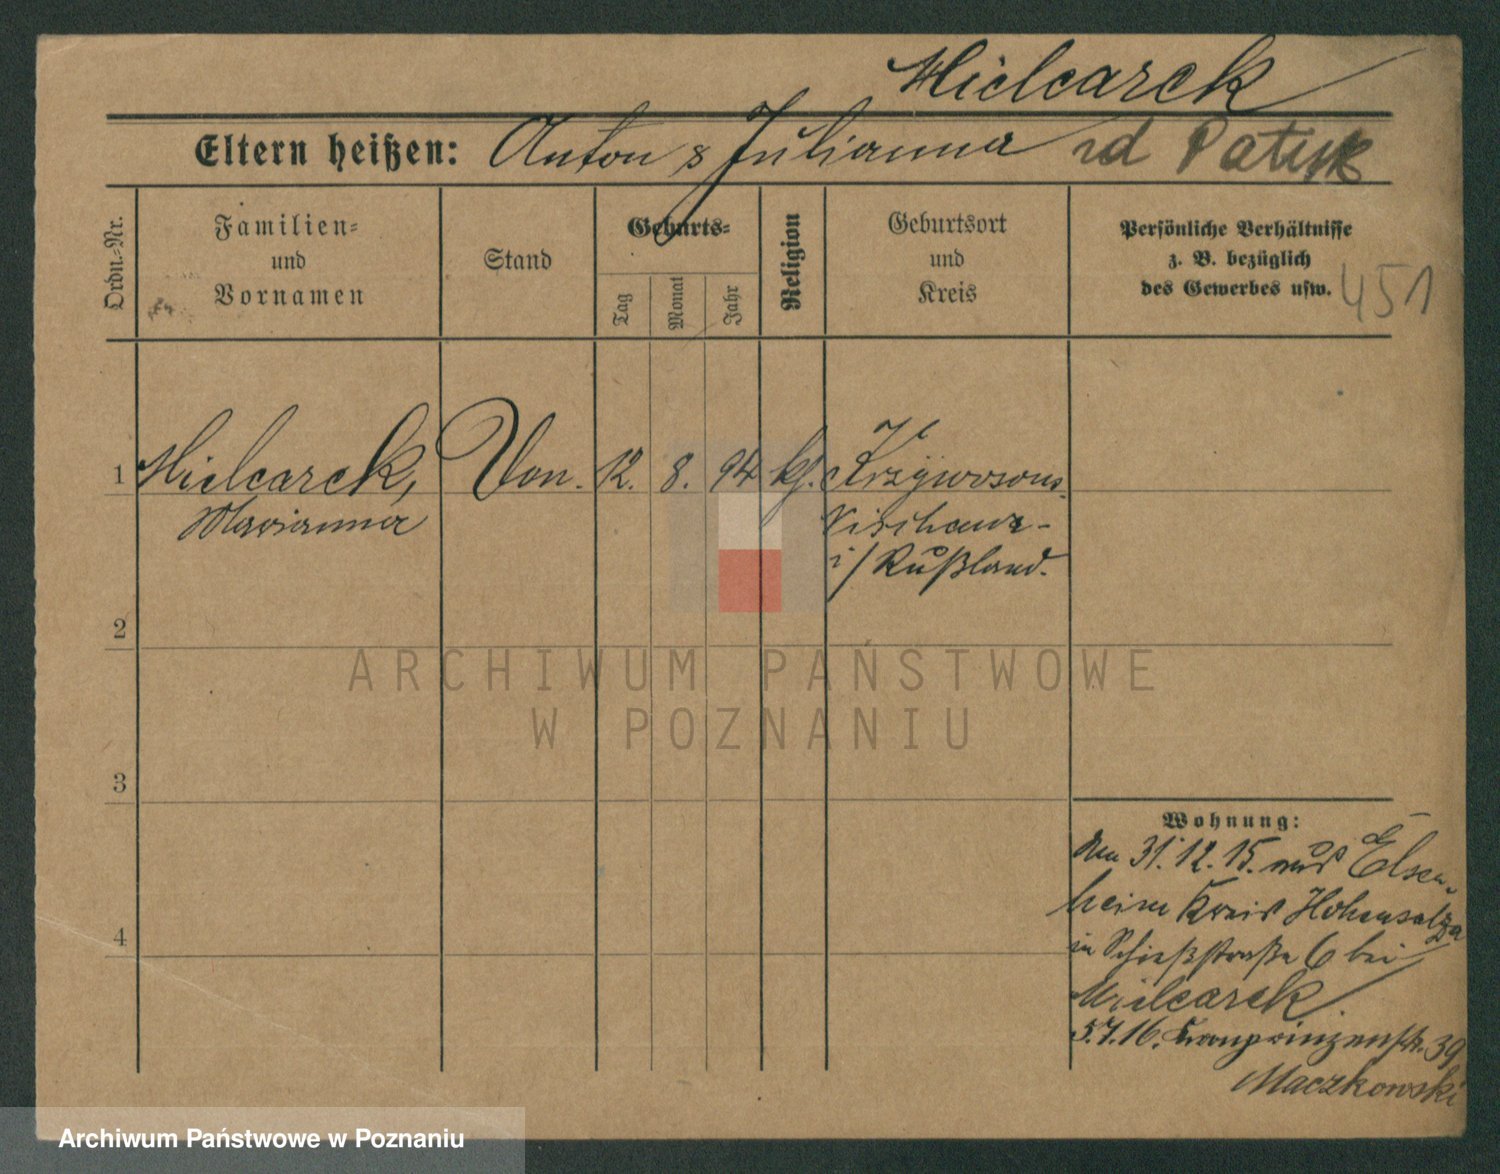 Mielcarek
Eltern heißen: Anton & Julianna rd Patyk
Ordn.-Nr.
Familien-
und
Vornamen
Stand
Geburts-
Tag
Monat
Jahr
Religion
Geburtsort
und
Kreis
Persönliche Verhältnisse
z. B. bezüglich
des Gewerbes usw.
451
1 Mielcarek, 12. 8. 94 kf.
Marianna
i/Rußland.
2
3
4
Wohnung:
Am 31.12.15. aus Elsen-
heim Kreis Hohensalza
in Schießstraße 6 bei
Mielcarek.
5.7.16. Kronprinzenstr. 39
Maczkowski
ARCHIWUM PAŃSTWOWE
W POZNANIU
Archiwum Państwowe w Poznaniu